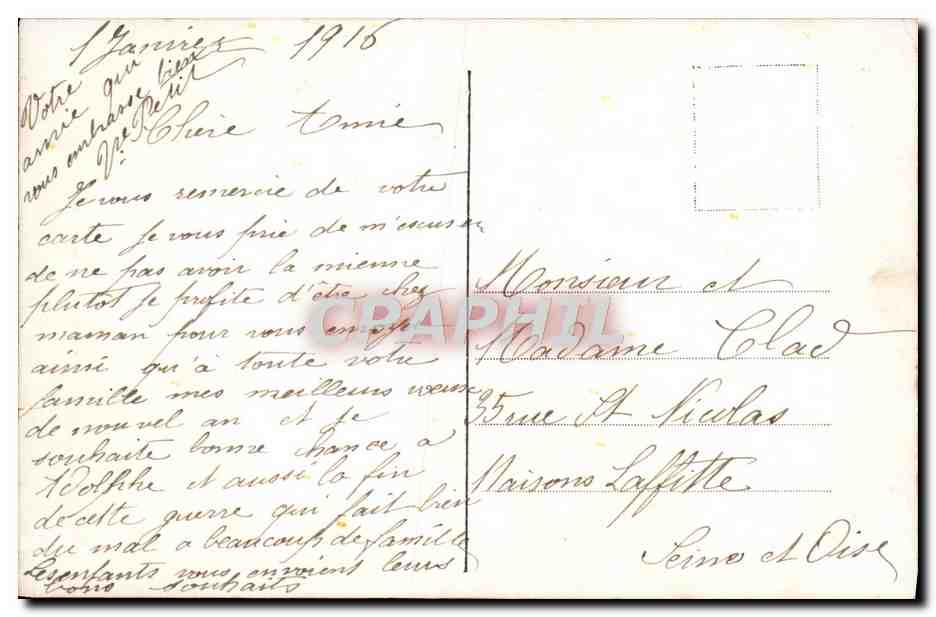 1 Janvier 1916
Chère Amie
Je vous remercie de votre
carte Je vous prie de m'escuser
de ne pas avoir la mienne
plutot Je profite d'être chez
maman pour vous envoyer
ainsi qu'à toute votre
famille mes meilleurs voeux
de nouvel an et je
souhaite bonne chance a
Adolphe et aussi la fin
de cette guerre qui fait bien
du mal a beaucoup de famille
Les enfants vous envoient leurs
bons souhaits
Votre
amie qui
vous embrasse bien
Ve Petit
Monsieur et
Madame Clad
35 rue St Nicolas
Maisons Laffitte
Seine et Oise
CPAPHIL